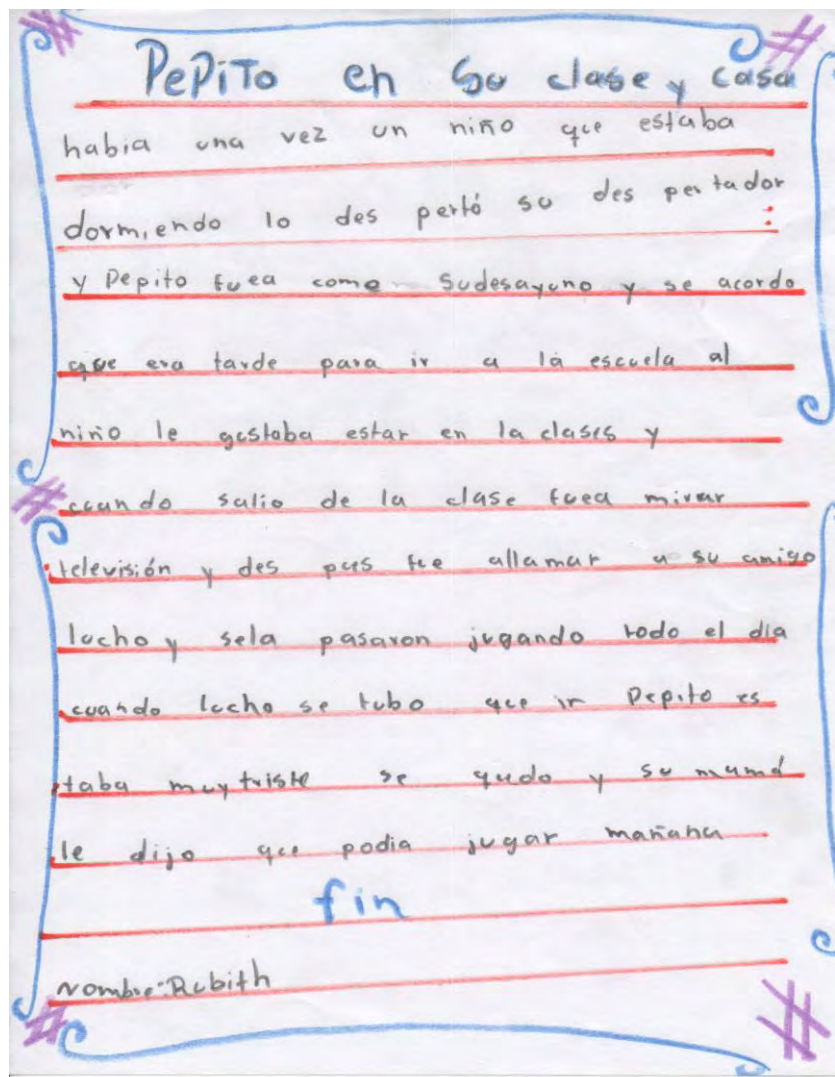 PePiTo en su clase y casa
habia una vez un niño que estaba
dormiendo lo des pertó su des pertador
y Pepito fuea come sudesayuno y se acordo
que era tarde para ir a la escuela al
niño le gustaba estar en la clases y
cuan do salio de la clase fuea mirar
televisión y des pues fue allamar a su amigo
lucho y sela pasaron jugando todo el día
cuando lucho se tubo que ir Pepito es
taba muytriste se qudo y su mamá
le dijo que podia jugar mañana
fin
nombre:Rubith